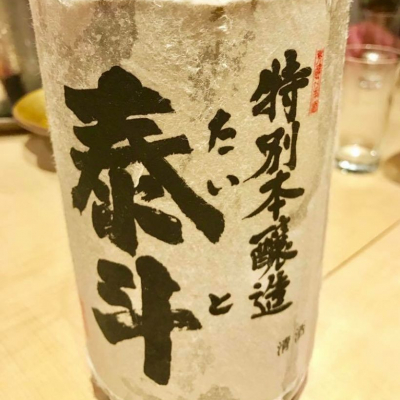 特別本醸造
たいと
泰斗
清酒